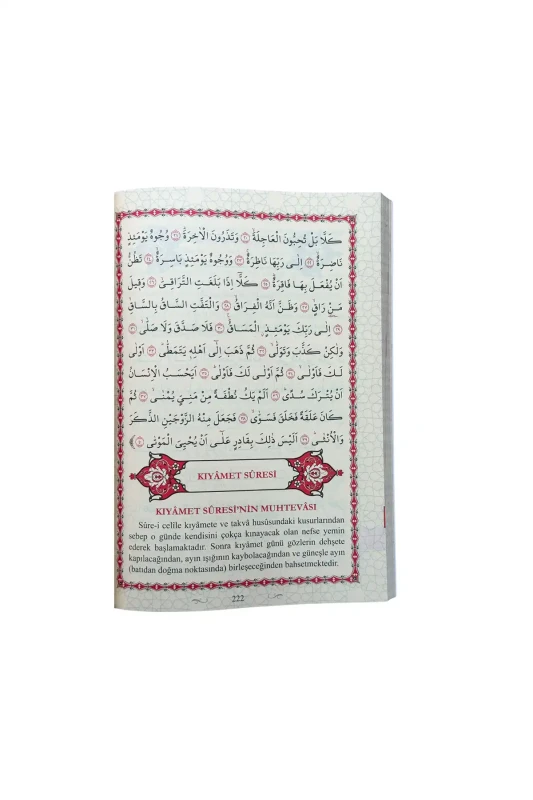 كَلَّا بَلْ تُحِبُّونَ الْعَاجِلَةَۙ ﴿٢٠﴾ وَتَذَرُونَ الْاٰخِرَةَۜ ﴿٢١﴾ وُجُوهٌ يَوْمَئِذٍ
نَاضِرَةٌۙ ﴿٢٢﴾ اِلٰى رَبِّهَا نَاظِرَةٌۚ ﴿٢٣﴾ وَوُجُوهٌ يَوْمَئِذٍ بَاسِرَةٌۙ ﴿٢٤﴾ تَظُنُّ
اَنْ يُفْعَلَ بِهَا فَاقِرَةٌۜ ﴿٢٥﴾ كَلَّٓا اِذَا بَلَغَتِ التَّرَاقِيَۙ ﴿٢٦﴾ وَقِيلَ
مَنْ رَاقٍۙ ﴿٢٧﴾ وَظَنَّ اَنَّهُ الْفِرَاقُۙ ﴿٢٨﴾ وَالْتَفَّتِ السَّاقُ بِالسَّاقِۙ
﴿٢٩﴾ اِلٰى رَبِّكَ يَوْمَئِذٍ الْمَسَاقُۜ ﴿٣٠﴾ فَلَا صَدَّقَ وَلَا صَلّٰىۙ ﴿٣١﴾
وَلٰكِنْ كَذَّبَ وَتَوَلّٰىۙ ﴿٣٢﴾ ثُمَّ ذَهَبَ اِلٰٓى اَهْلِه۪ يَتَمَطّٰىۜ ﴿٣٣﴾ اَوْلٰى
لَكَ فَاَوْلٰىۙ ﴿٣٤﴾ ثُمَّ اَوْلٰى لَكَ فَاَوْلٰىۜ ﴿٣٥﴾ اَيَحْسَبُ الْاِنْسَانُ
اَنْ يُتْرَكَ سُدًىۜ ﴿٣٦﴾ اَلَمْ يَكُ نُطْفَةً مِنْ مَنِيٍّ يُمْنٰىۙ ﴿٣٧﴾ ثُمَّ
كَانَ عَلَقَةً فَخَلَقَ فَسَوّٰىۙ ﴿٣٨﴾ فَجَعَلَ مِنْهُ الزَّوْجَيْنِ الذَّكَرَ
وَالْاُنْثٰىۜ ﴿٣٩﴾ اَلَيْسَ ذٰلِكَ بِقَادِرٍ عَلٰٓى اَنْ يُحْيِيَ الْمَوْتٰى ﴿٤٠﴾
KIYÂMET SÛRESİ
KIYÂMET SÛRESİ'NİN MUHTEVÂSI
Sûre-i celîle kıyâmete ve takvâ husûsundaki kusurlarından
sebep o günde kendisini çokça kınayacak olan nefse yemin
ederek başlamaktadır. Sonra kıyâmet günü gözlerin dehşete
kapılacağından, ayın ışığının kaybolacağından ve güneşle ayın
(batıdan doğma noktasında) birleşeceğinden bahsetmektedir.
222